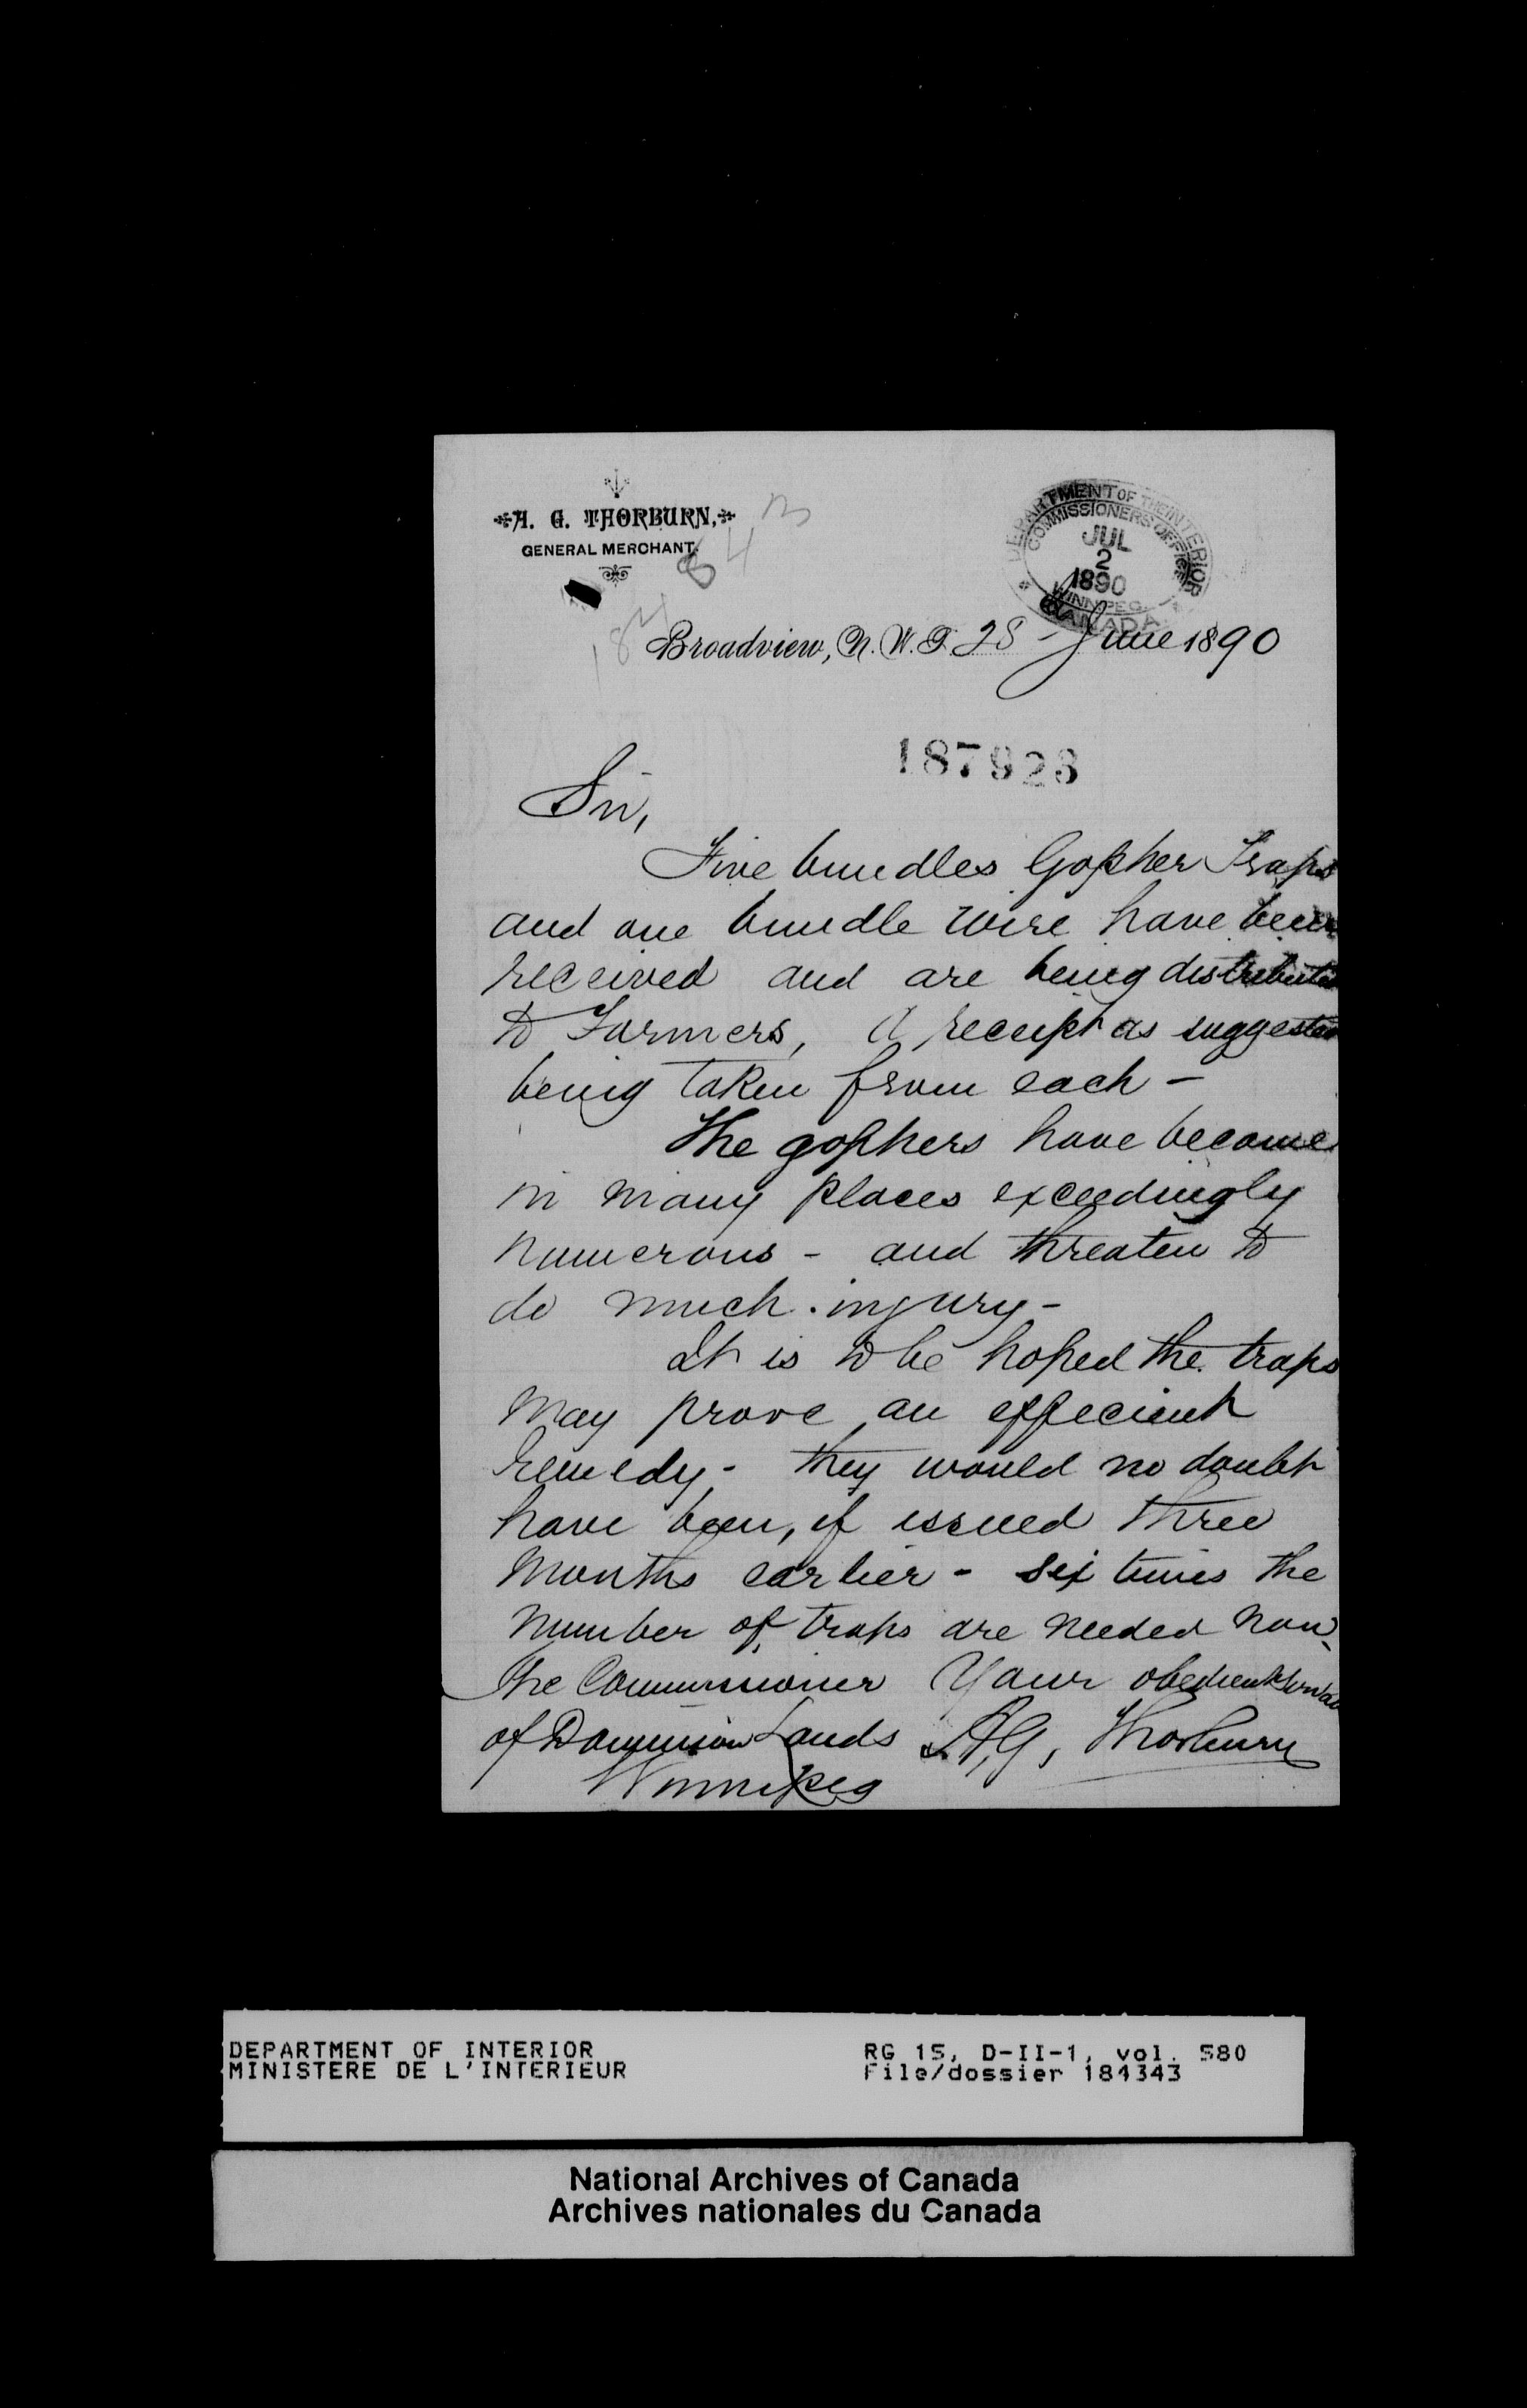 A. G. THORBURN,
GENERAL MERCHANT.
DEPARTMENT OF THE INTERIOR
COMMISSIONERS OFFICE
JUL
2
1890
WINNIPEG.
CANADA.
184343
Broadview, N. W. T. 28 - June 1890
187923
Sir,
Five bundles Gopher Traps
and one bundle wire have been
received and are being distributed
to Farmers, a receipt as suggested
being taken from each -
The gophers have become
in many places exceedingly
numerous - and threaten to
do much injury -
It is to be hoped the traps
may prove an effecient
remedy - they would no doubt
have been, if issued three
months earlier - six times the
number of traps are needed now -
The Commissioner Your obedient servant
of Dominion Lands A, G, Thorburn
Winnipeg
DEPARTMENT OF INTERIOR RG 15, D-II-1, vol. 580
MINISTERE DE L'INTERIEUR File/dossier 184343
National Archives of Canada
Archives nationales du Canada